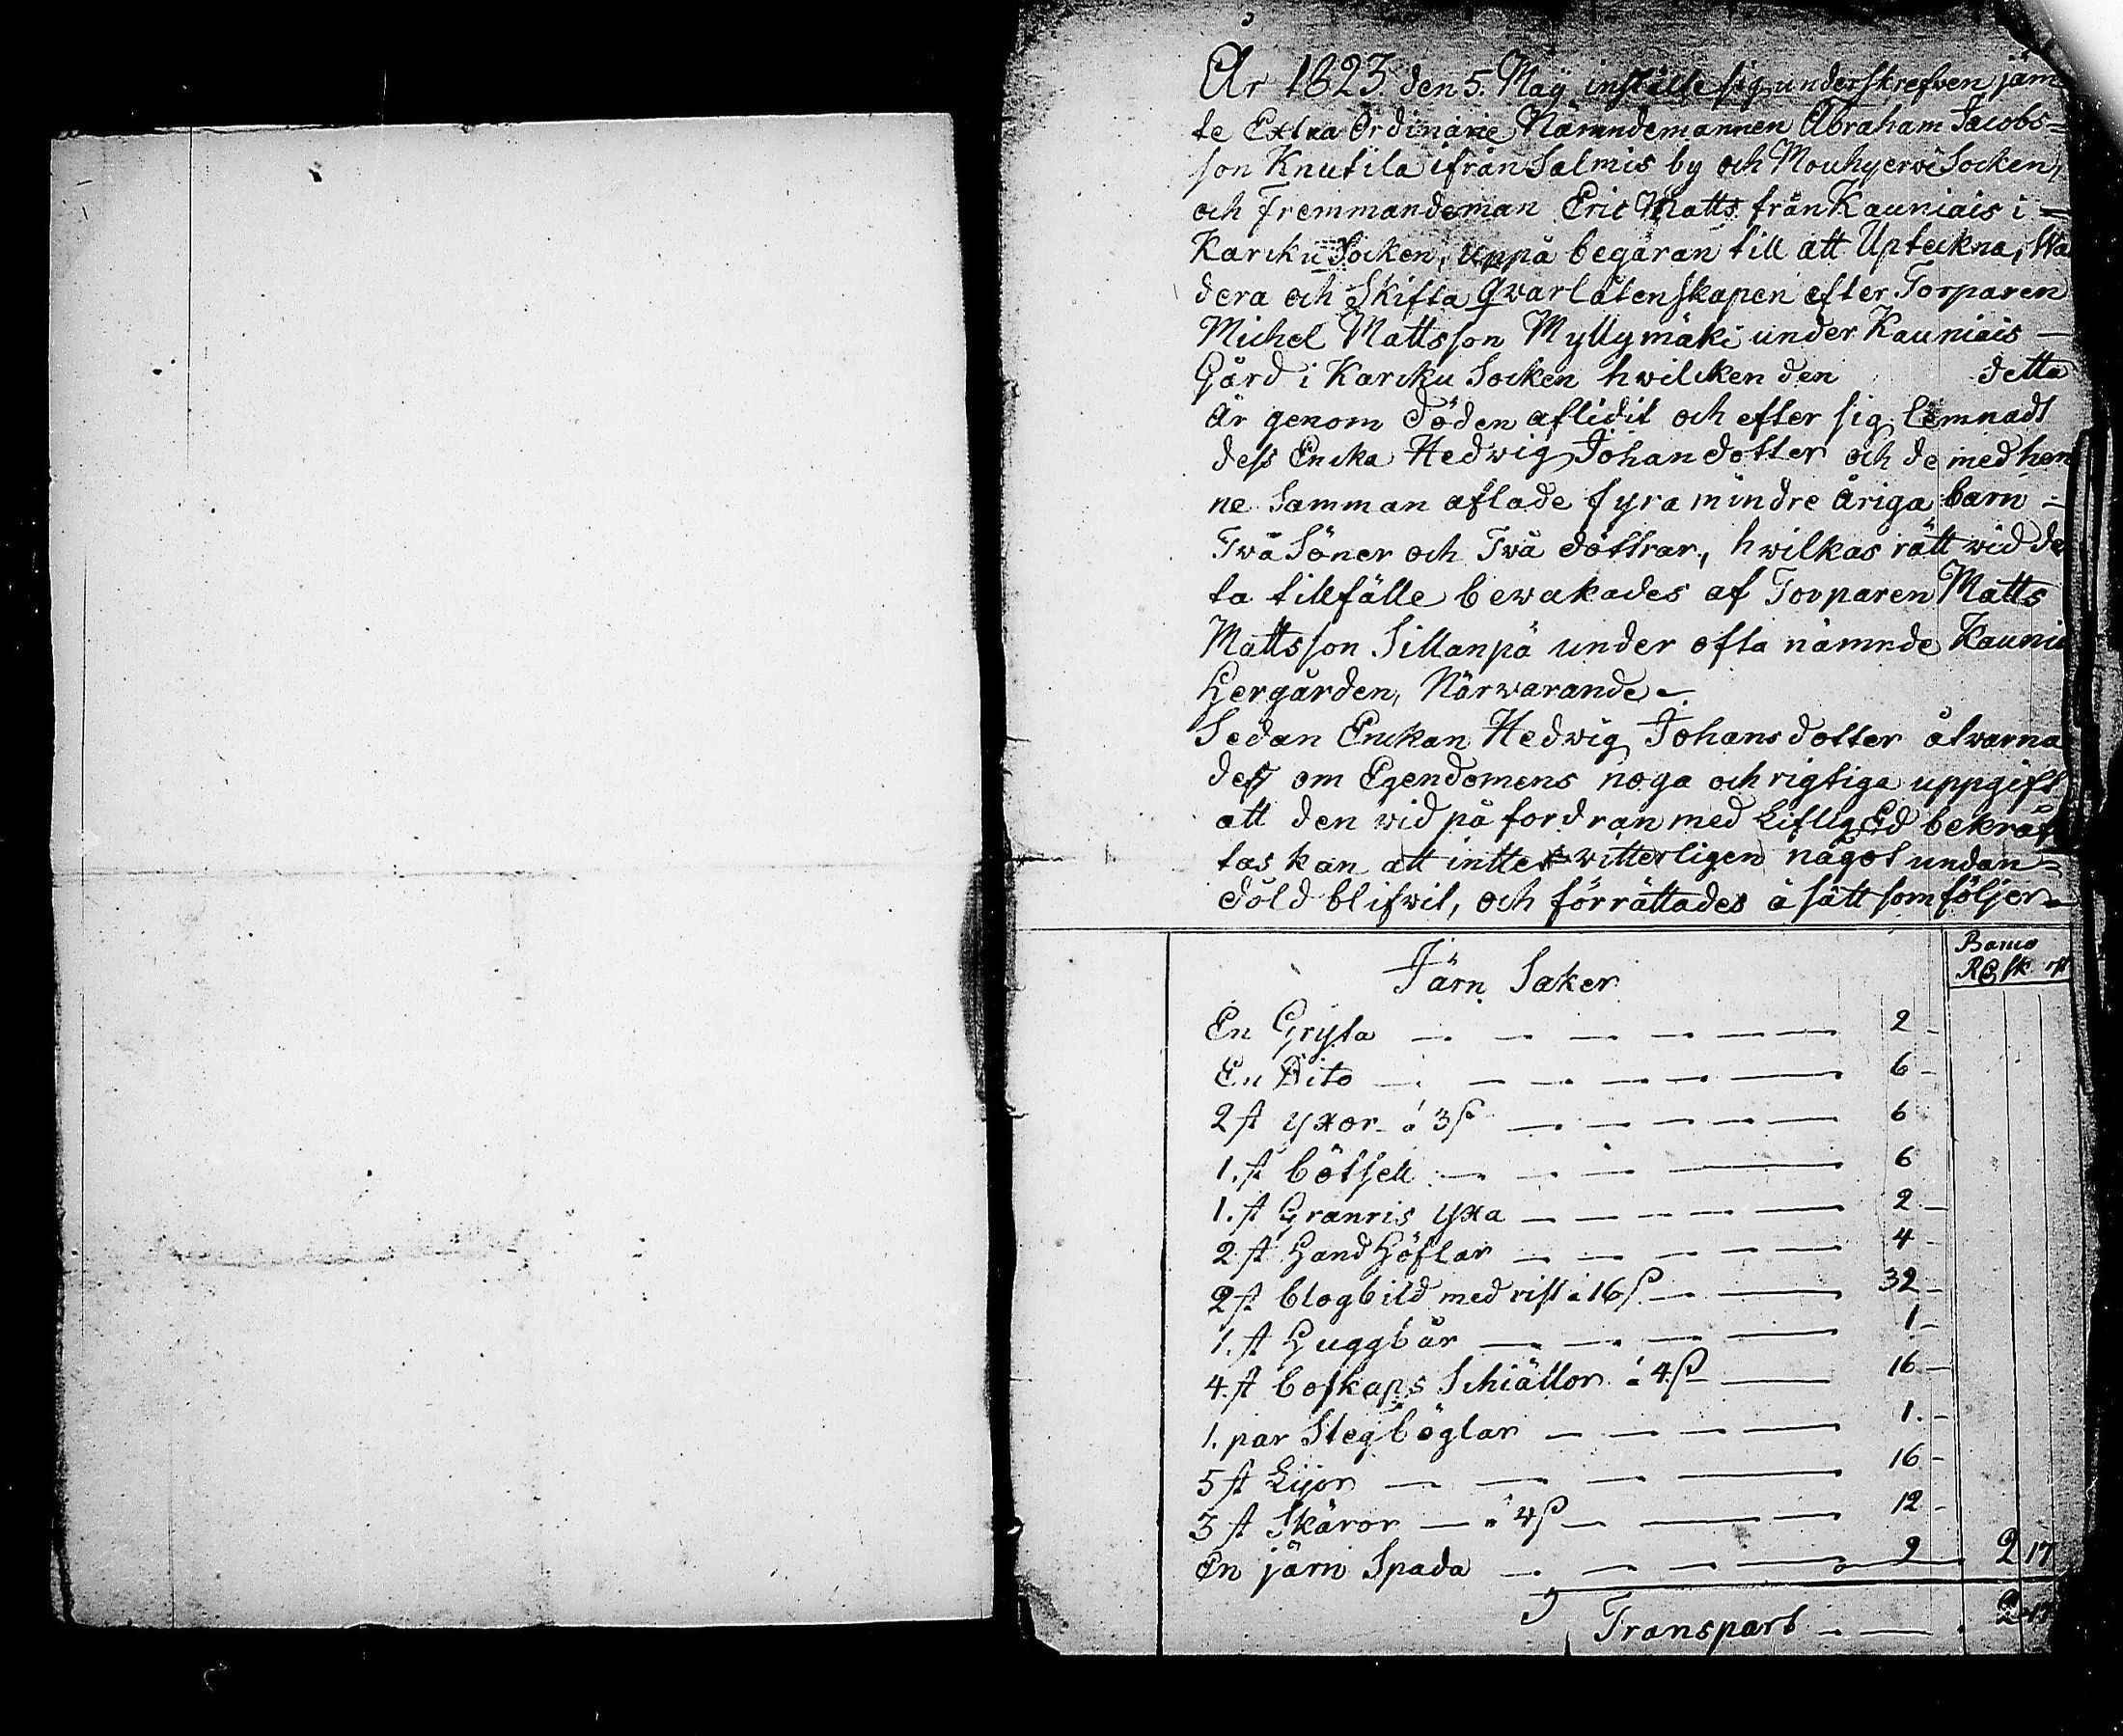 År 1823 den 5. Maÿ instälte sig underskrefven jäm
te Extra Ordinarie Nämndemannen Abraham Jacobs=
son Knutila ifrån Salmis by och Mouhyerwi Socken,
och Fremmandeman Eric Matts från Kauniais i =
Karcku Socken, Uppå begäran till att Upteckna, Wa
dera och Skifta Qvarlåtenskapen efter Torparen
Michel Mattsson Myllymäki under Kauniais —
Gård i Karcku Socken hwilcken den detta
År genom döden aflidit och efter sig lemnadt
dess Encka Hedwig Johan dotter och de med hen
ne Samman aflade fyra mindre åriga barn -
Två Söner och Två döttrar, hwilkas rätt wid de
ta tillfälle bewakades af Torparen Matts
Mattsson Sillanpä under ofta nämnde Kauni
Hergården, Närwarande -
Sedan Enckan Hedwig Johans dotter alwarna
des om Egendomens noga och rigtiga uppgift
att den wid på fordran med Liflig Ed bekräf
tas kan att intte witterligen något undan=
döld blifwit, och förrättades å sätt som följer -
Banco
Järn Saker R sk
En Gryta — — — — — — 2 -
En Dito — — — — — — 6 -
2 st yxor á 3 ß — — — — — 6
1. st bötsell — — — — 6
1. st Granris yxa — — — — — 2 -
2 st Hand Höflar — — — — — 4 -
2 st blogbild med rist á 16 ß — — 32 -
1. st Huggbår — — — — 1 -
4. st boskaps Schiällor á 4 ß — 16 -
1. par Stegböglar — — — — 1. -
5 st Lijor — — — — 16 -
3 st Skäror — á 4 ß — — — 12 -
En järn Spada — — — — 9 2 17
Transport — — 2 17